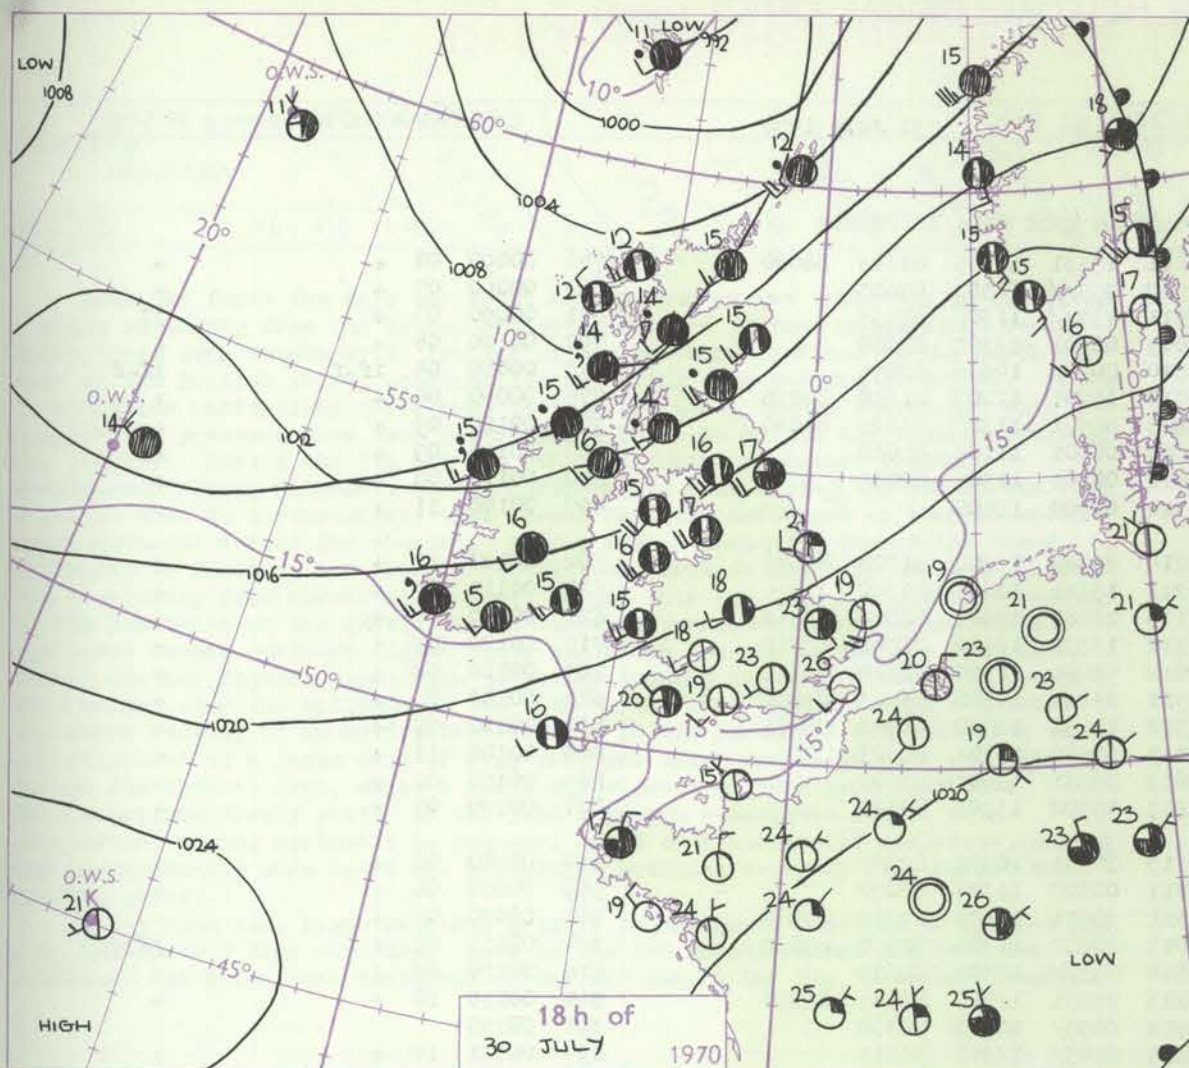 LOW
1008
O.W.S.
11
11
LOW
992
10°
1000
60°
15
18
12
14
1004
20°
1008
12
15
15
15
15
17
12
14
15
16
10°
14
15
0°
10°
O.W.S.
14
55°
1012
15
14
15°
15
16
16
17
15
17
21
21
16
16
1016
15°
16
15
15
15
18
23
19
19
21
21
18
23
20
20
23
50°
1020
16
20
19
15°
15°
24
23
19
24
15
1020
1024
17
21
24
24
23
23
O.W.S.
K
21
19
24
24
24
26
45°
LOW
HIGH
25
24
25
18h of
30 JULY
1970